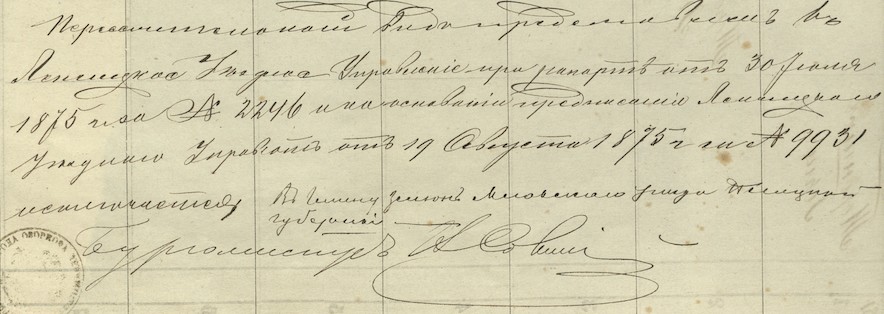 Переселительный Видъ представленъ въ
Ленчицкое Уѣздное Управленіе при рапортѣ отъ 30 Іюля
1875 г. за № 2246 и на основаніи предписанія Ленчицкаго
Уѣзднаго Управ. отъ 19 Августа 1875 г. за № 9931
исключается, въ гмину Мławскаго уѣзда Плоцкой
губерніи
Бургомистръ